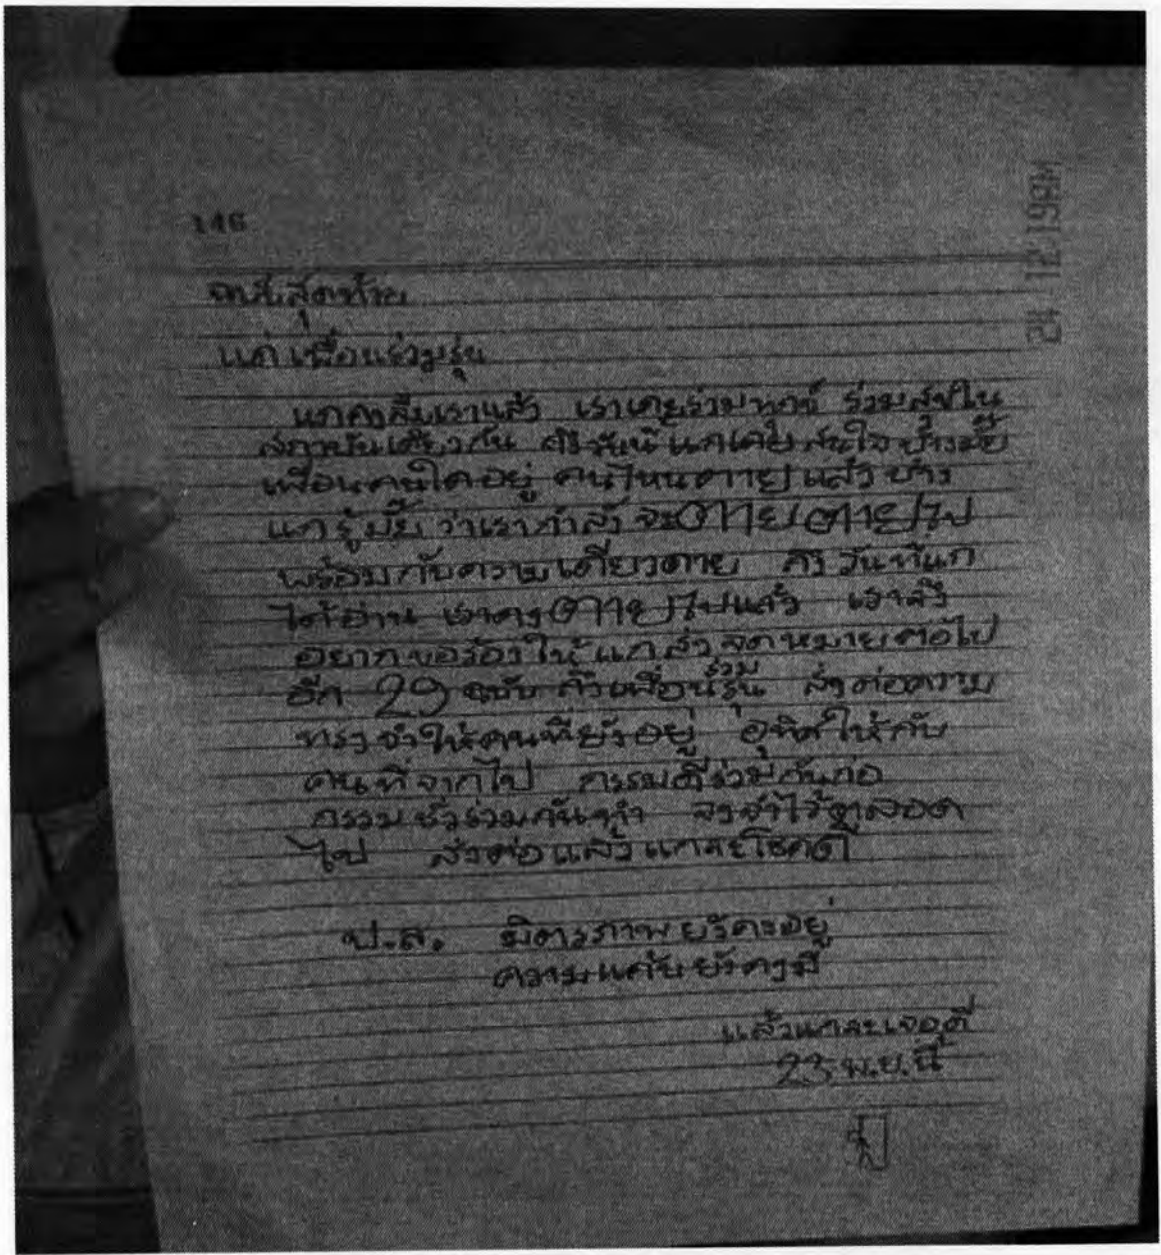 146
24 12:19AM
จ.ม.ที่สุดท้าย
แก่ เพื่อนร่วมรุ่น
แกคงลืมเราแล้ว เราเคยร่วมทุกข์ ร่วมสุขใน
สถาบันเดียวกัน ถึงวันนี้ แกเคยสนใจบ้างมั้ย
เพื่อนคนใดอยู่ คนไหนตายแล้วบ้าง
แกรู้มั้ย ว่าเรากำลังจะตาย ตายไป
พร้อมกับความเดียวดาย ถึงวันที่แก
ได้อ่าน เราคงตายไปแล้ว เราจึง
อยากขอร้องให้แกส่งจดหมายต่อไป
อีก 29 ฉบับ ถึงเพื่อนร่วมรุ่น ส่งต่อความ
ทรงจำให้คนที่ยังอยู่ อุทิศให้กับ
คนที่จากไป กรรมดีร่วมกันก่อ
กรรมชั่วร่วมกันทำ จงจำไว้ตลอด
ไป ส่งต่อแล้วแกจะโชคดี
ป.ล. มิตรภาพยังคงอยู่
ความแค้นยังคงมี
แล้วแกจะเจอดี
23 พ.ย. นี้